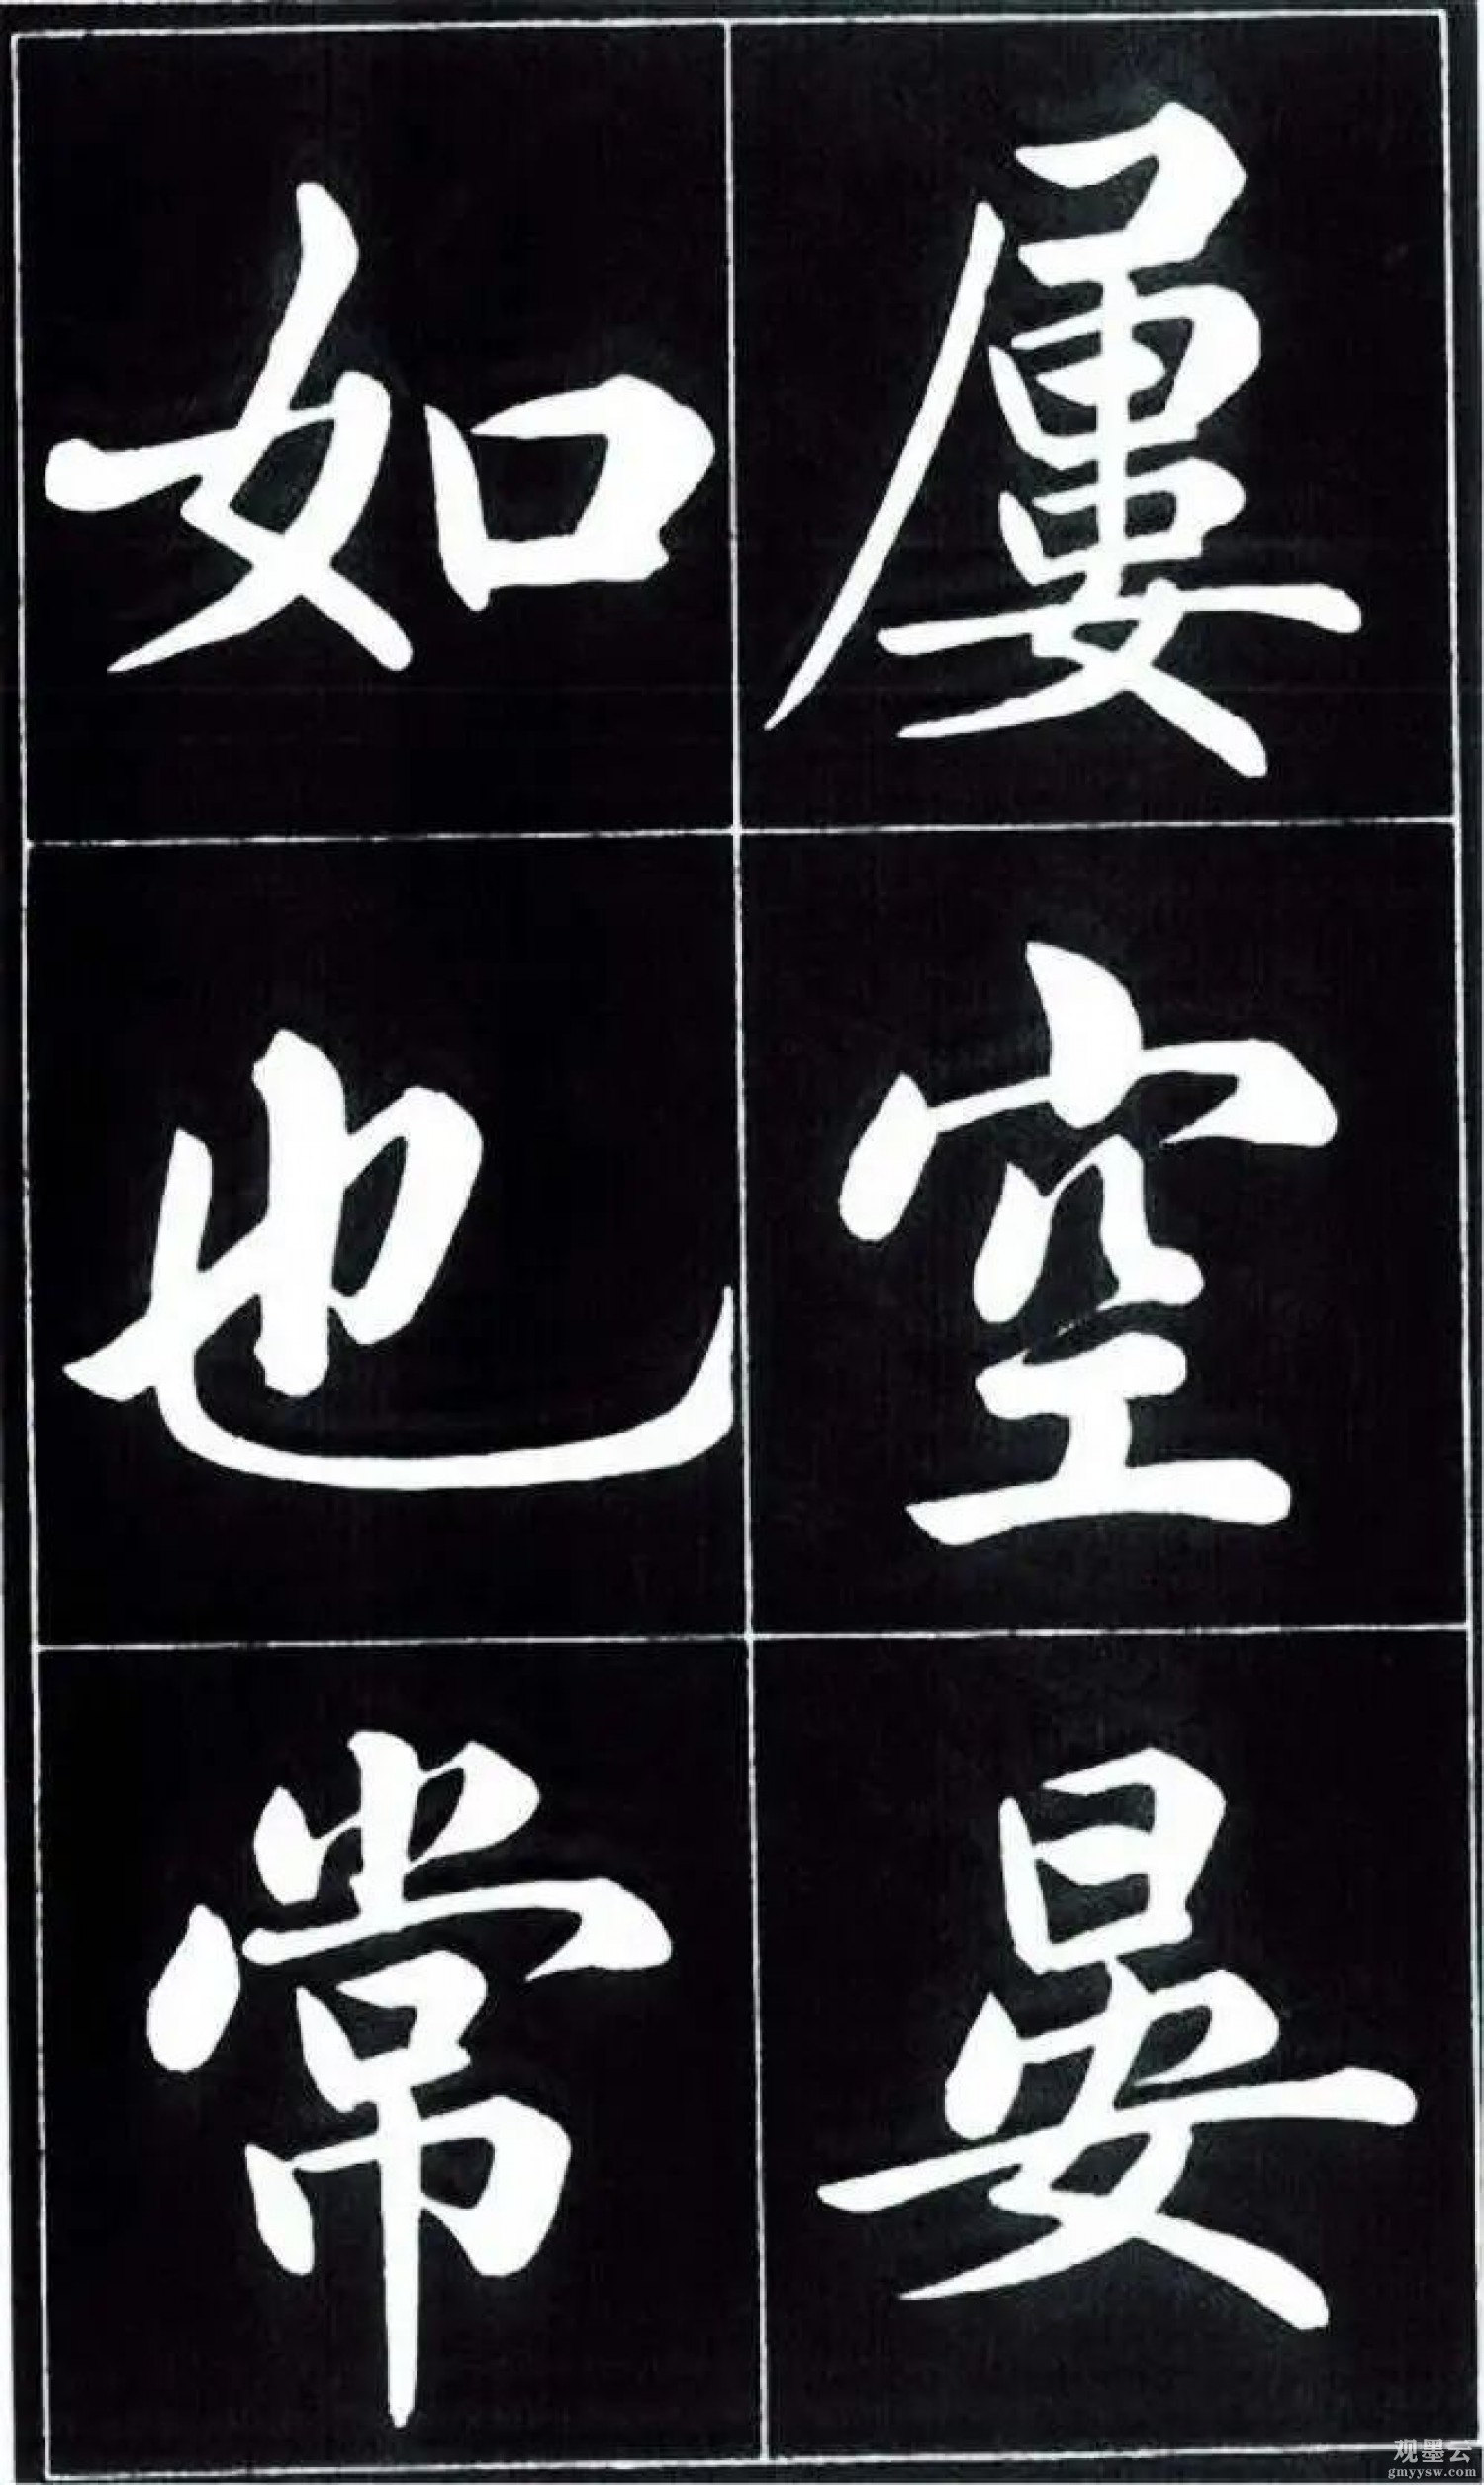 屢空晏
如也常
观墨云
gmyysw.com